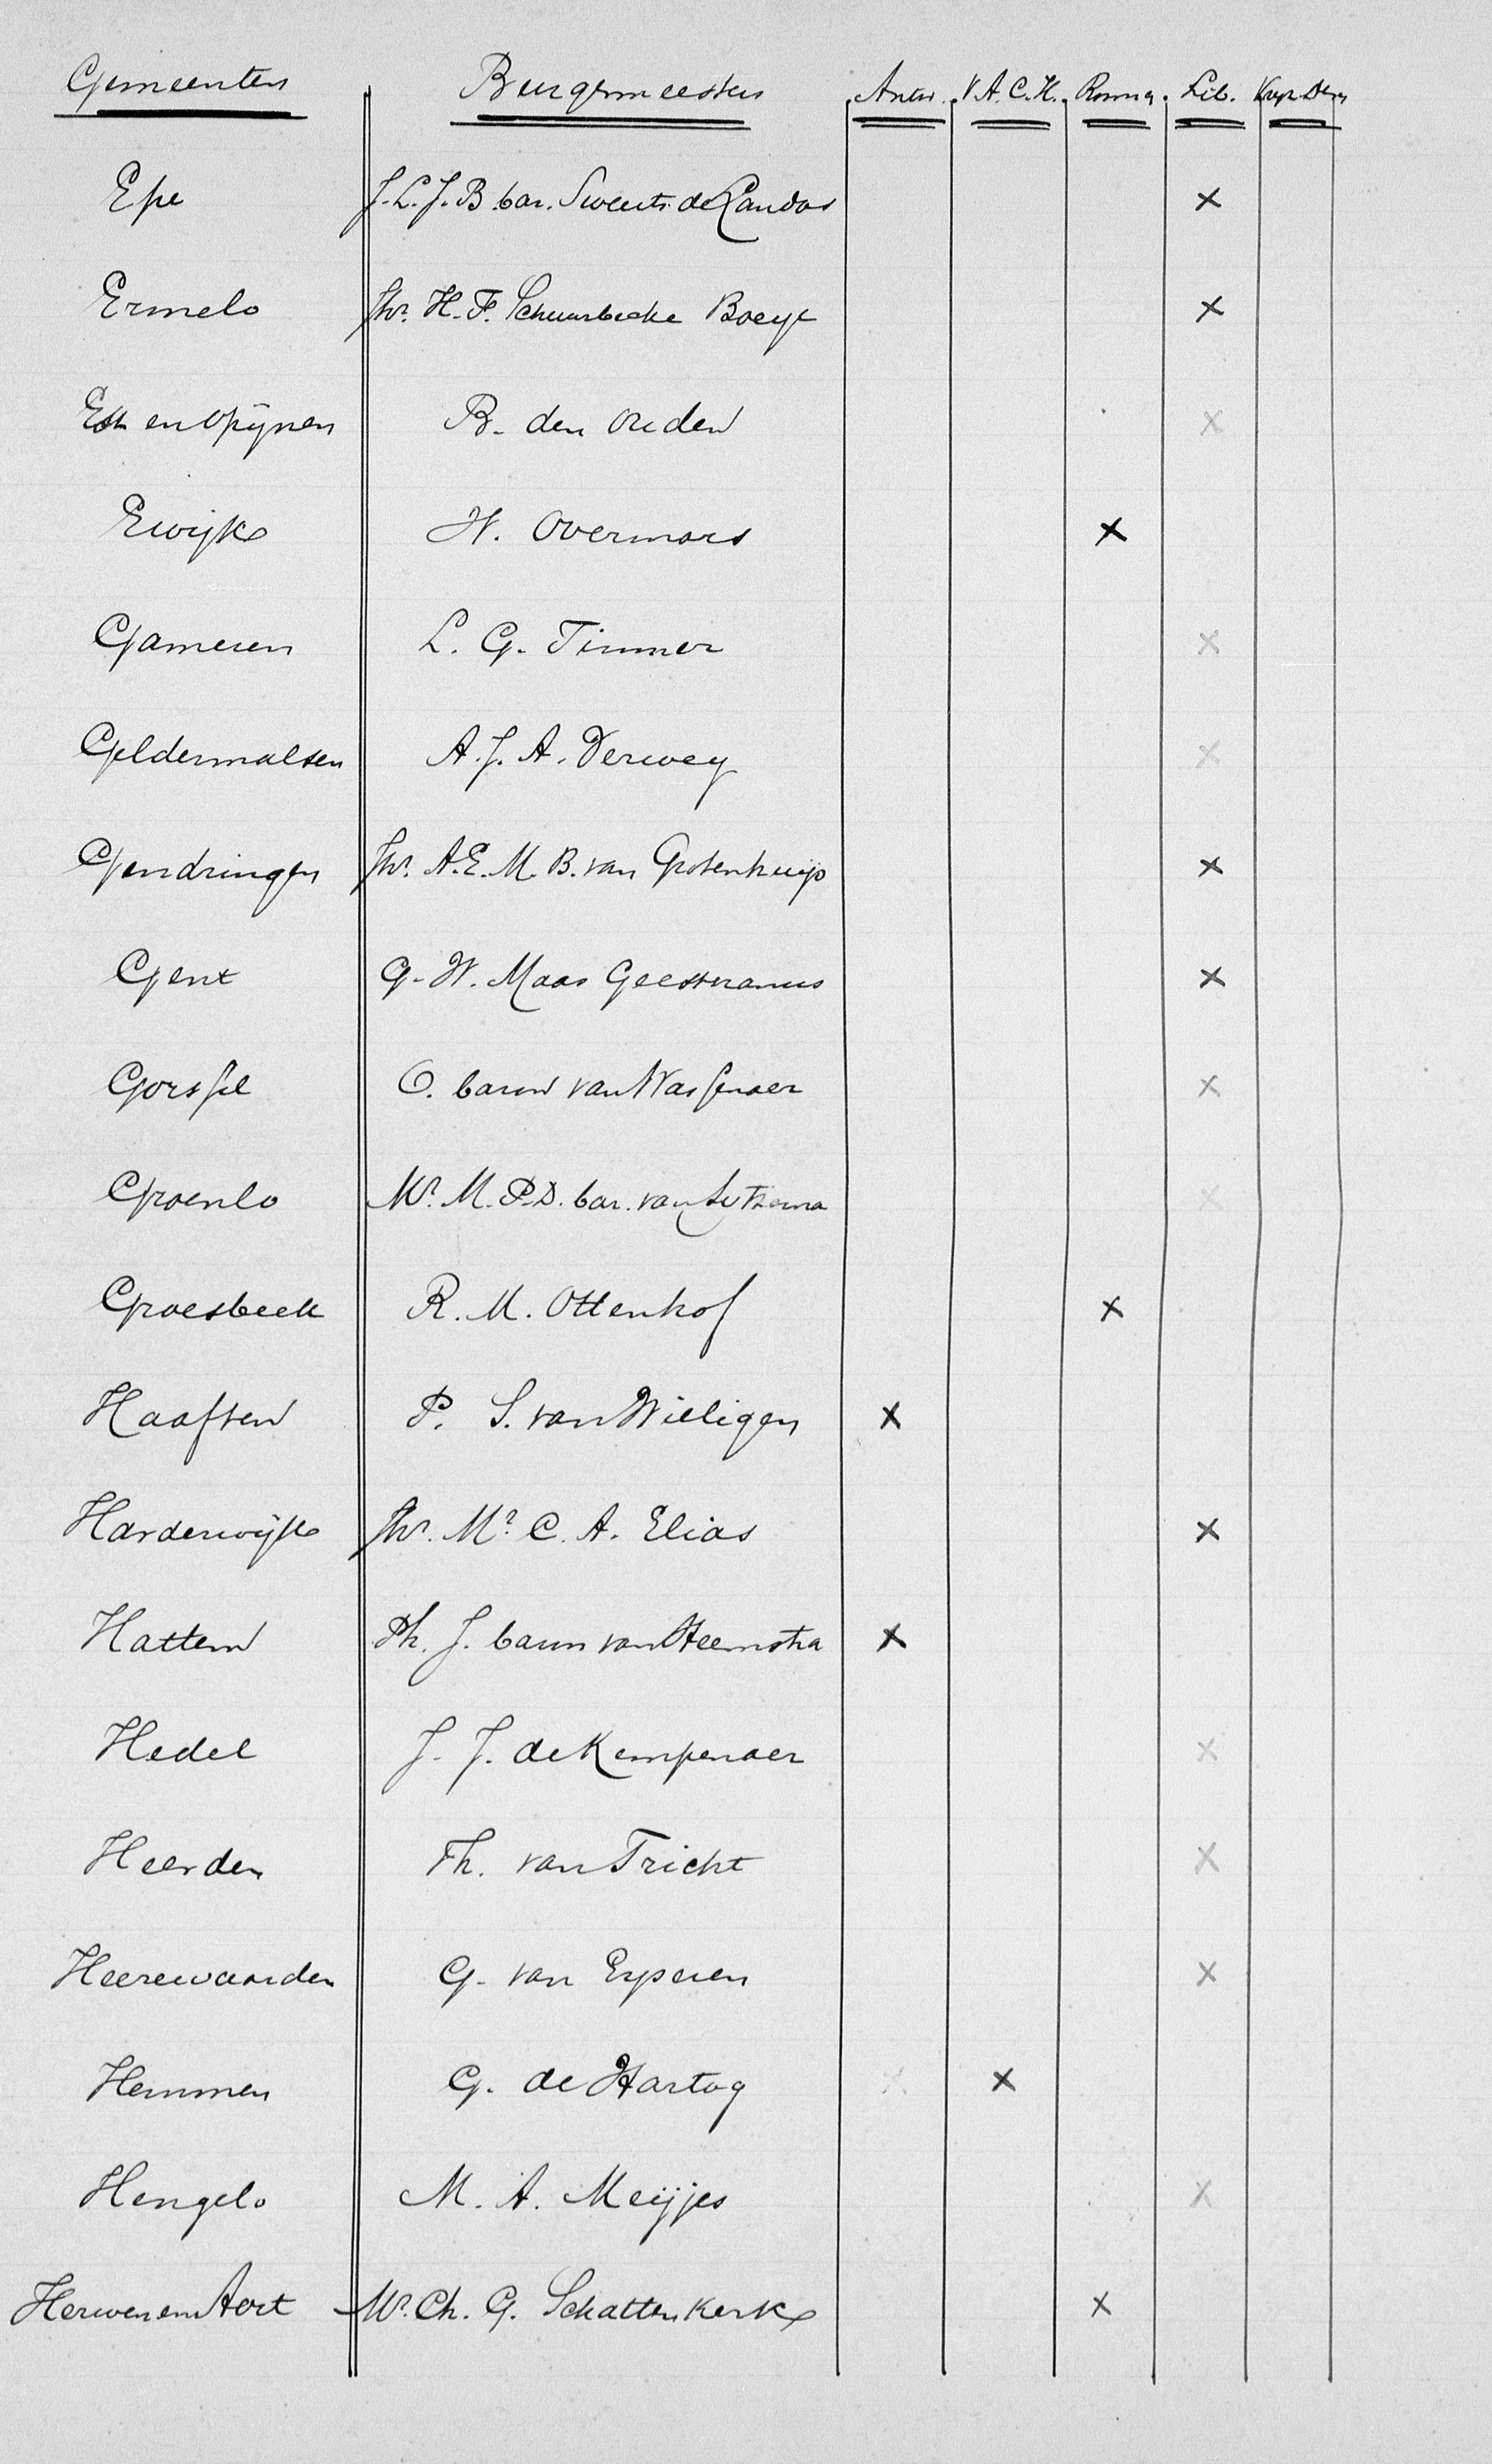 Gemeenten Burgemeesters Antir. V.A.C.H. Rooms. Lib. Vrijz. Dem.
Epe J.L.J.B. bar. Sweerts de Landas ×
Ermelo Jhr. H.F. Schuurbecke Boeye ×
Est en Opijnen B. den Ouden ×
Ewijk W. Overmars ×
Gameren L.G. Timmer ×
Geldermalsen A.J.A. Verwey ×
Gendringen Jhr. A.E.M.B. van Grotenhuijs ×
Gent G.W. Maas Geesteranus ×
Gorssel O. baron van Wassenaer ×
Groenlo Mr. M.P.D. bar. van Sytzama ×
Groesbeek R.M. Ottenhof ×
Haaften P. S. van Willigen ×
Harderwijk Jhr. Mr. C.A. Elias ×
Hattem Ph. J. baron van Heemstra ×
Hedel J.J. de Kempenaer ×
Heerden Th. van Tricht ×
Heerewaarden G. van Eyseren ×
Hemmen G. de Hartog × ×
Hengelo M.A. Meijjes ×
Herwen en Aert Mr. Ch. G. Schattenkerk ×